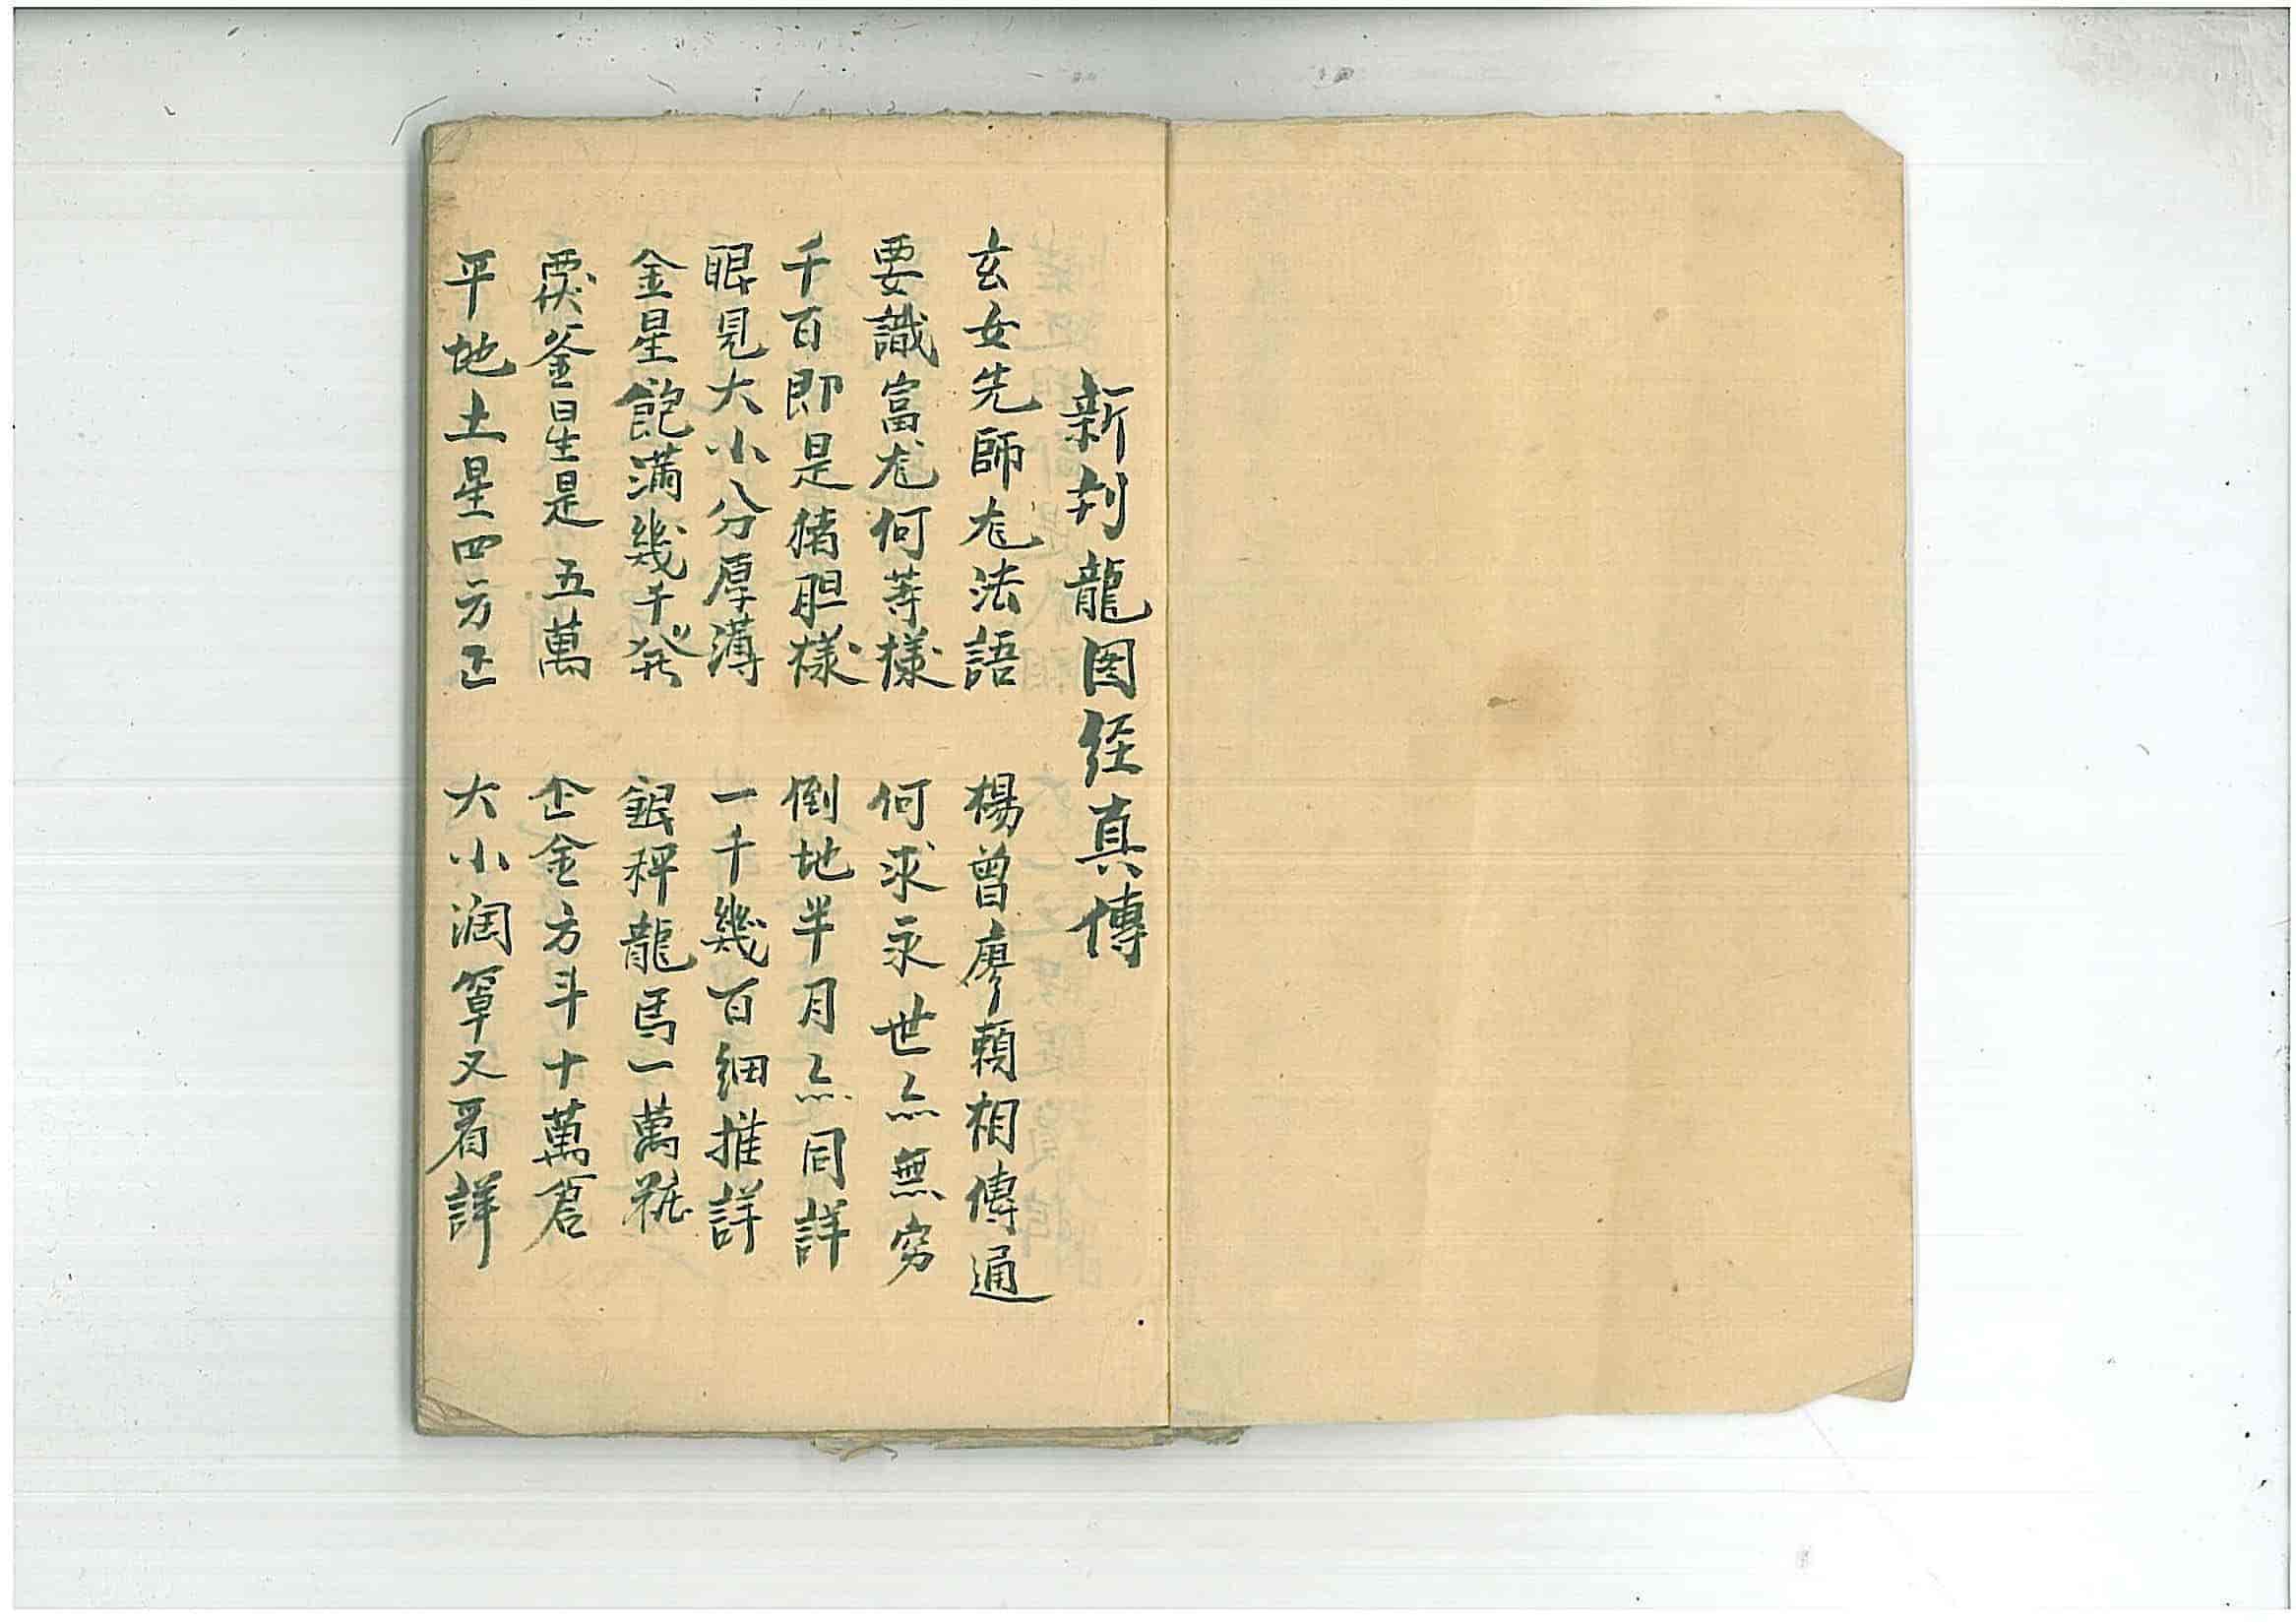 新刋龍图经真傳
玄女先師尨法語 楊曾廖頼相傳通
要識富尨何等樣 何求永世亦無穷
千百即是猪胆樣 倒地半月亦同詳
眼見大小分厚薄 一千幾百細推詳
金星飽滿幾千 銀秤龍馬一萬
釜星是五萬 金方斗十萬倉
平地土星四方正 大小濶又看詳